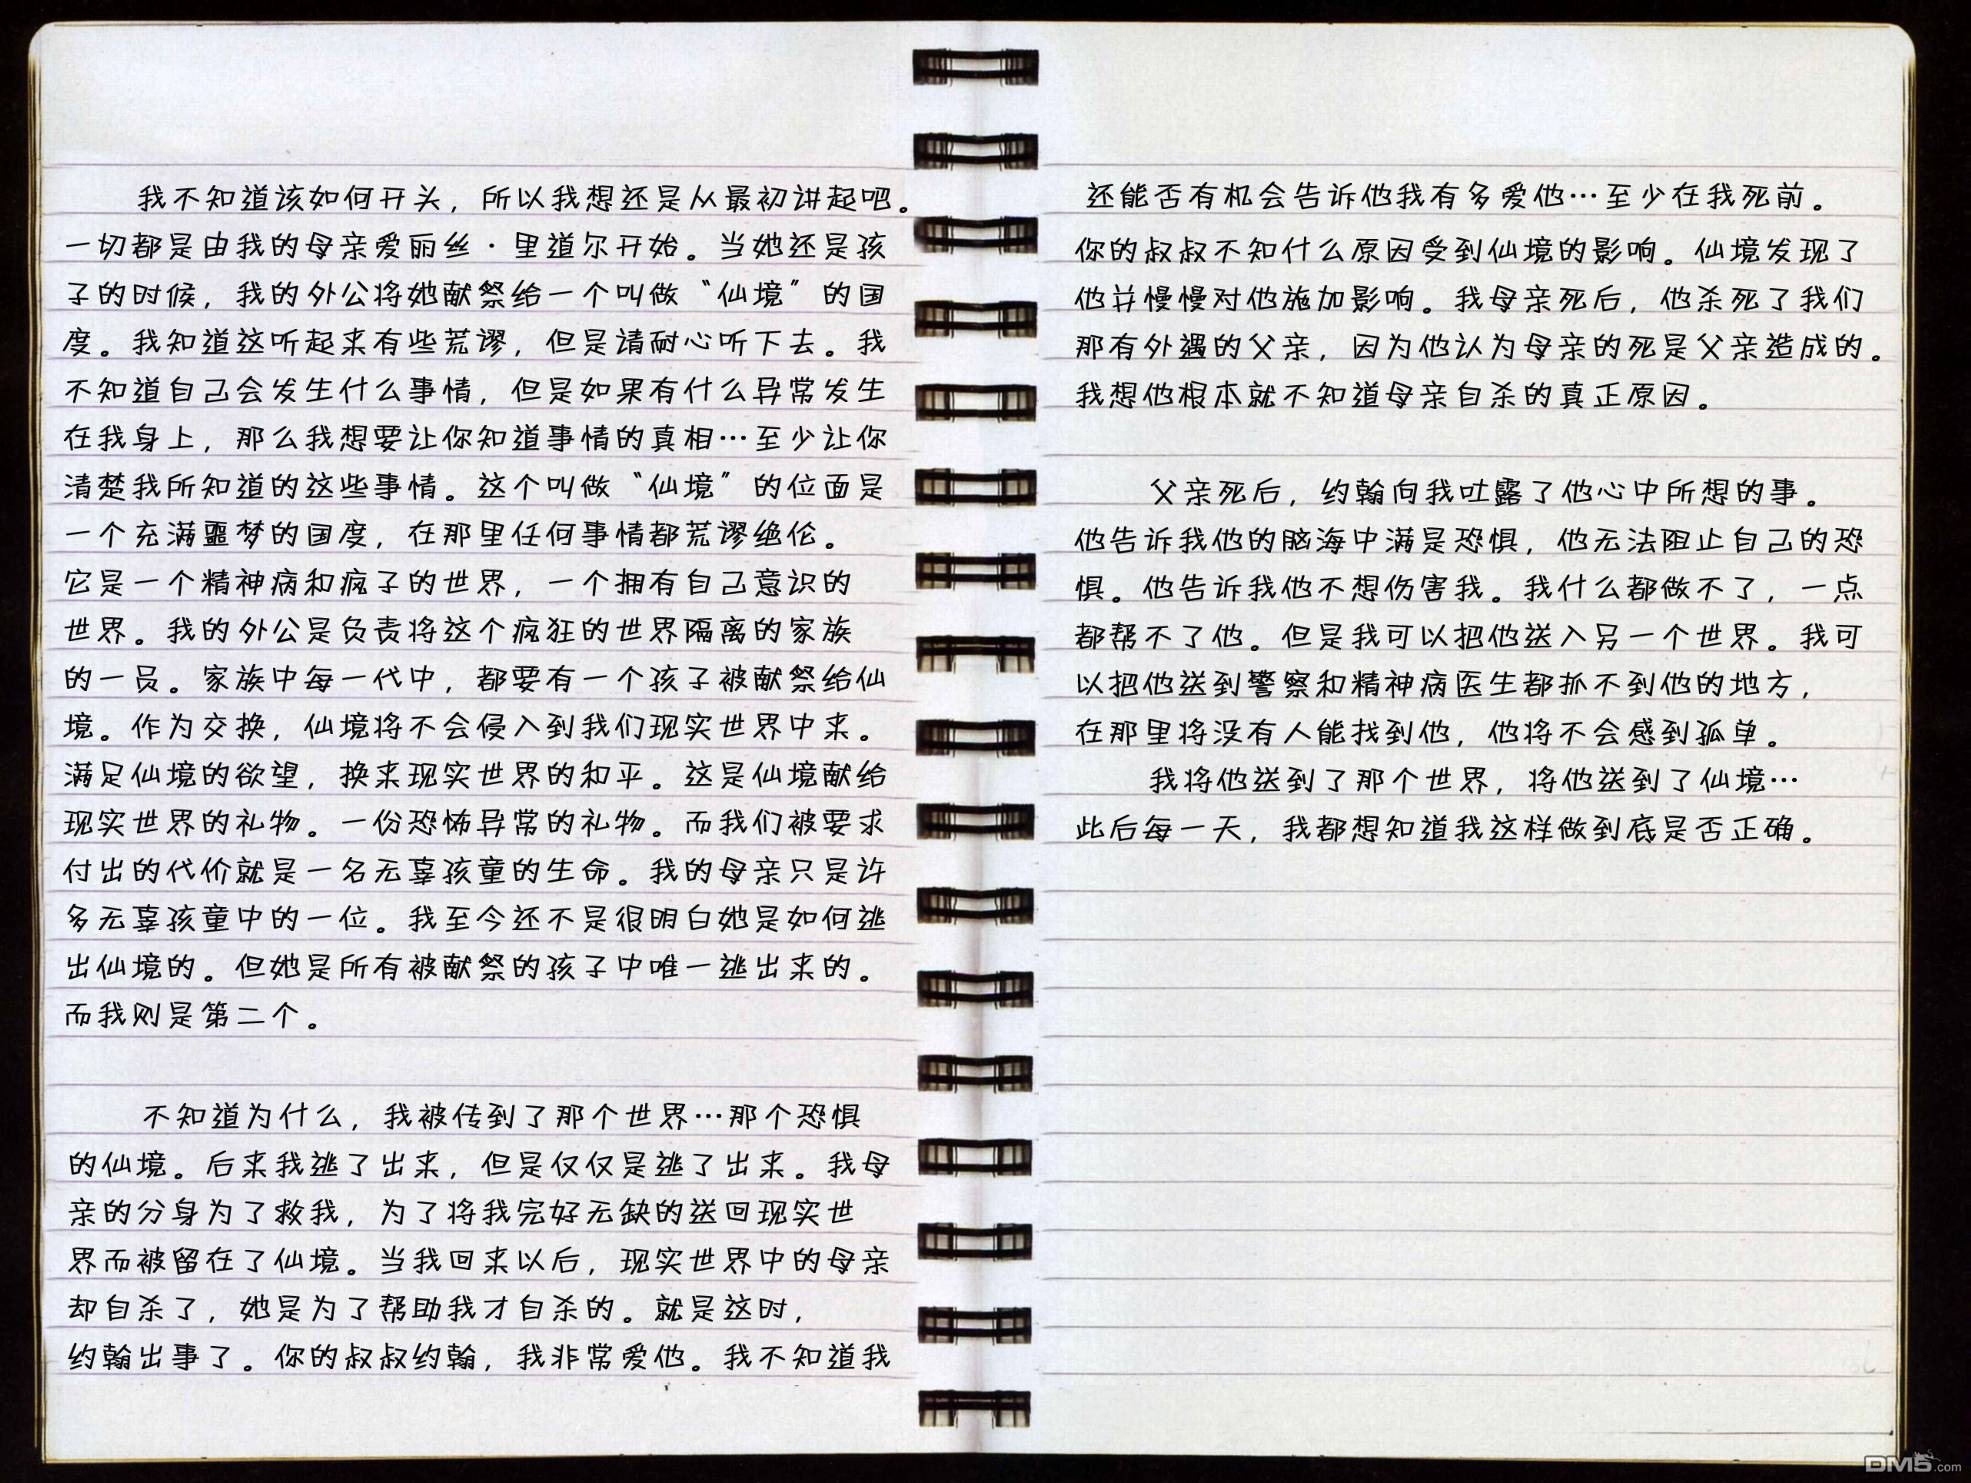 我不知道该如何开头，所以我想还是从最初讲起吧。
一切都是由我的母亲爱丽丝·里道尔开始。当她还是孩
子的时候，我的外公将她献祭给一个叫做“仙境”的国
度。我知道这听起来有些荒谬，但是请耐心听下去。我
不知道自己会发生什么事情，但是如果有什么异常发生
在我身上，那么我想要让你知道事情的真相…至少让你
清楚我所知道的这些事情。这个叫做“仙境”的位面是
一个充满噩梦的国度，在那里任何事情都荒谬绝伦。
它是一个精神病和疯子的世界，一个拥有自己意识的
世界。我的外公是负责将这个疯狂的世界隔离的家族
的一员。家族中每一代中，都要有一个孩子被献祭给仙
境。作为交换，仙境将不会侵入到我们现实世界中来。
满足仙境的欲望，换来现实世界的和平。这是仙境献给
现实世界的礼物。一份恐怖异常的礼物。而我们被要求
付出的代价就是一名无辜孩童的生命。我的母亲只是许
多无辜孩童中的一位。我至今还不是很明白她是如何逃
出仙境的。但她是所有被献祭的孩子中唯一逃出来的。
而我则是第二个。
不知道为什么，我被传到了那个世界…那个恐惧
的仙境。后来我逃了出来，但是仅仅是逃了出来。我母
亲的分身为了救我，为了将我完好无缺的送回现实世
界而被留在了仙境。当我回来以后，现实世界中的母亲
却自杀了，她是为了帮助我才自杀的。就是这时，
约翰出事了。你的叔叔约翰，我非常爱他。我不知道我
还能否有机会告诉他我有多爱他…至少在我死前。
你的叔叔不知什么原因受到仙境的影响。仙境发现了
他并慢慢对他施加影响。我母亲死后，他杀死了我们
那有外遇的父亲，因为他认为母亲的死是父亲造成的。
我想他根本就不知道母亲自杀的真正原因。
父亲死后，约翰向我吐露了他心中所想的事。
他告诉我他的脑海中满是恐惧，他无法阻止自己的恐
惧。他告诉我他不想伤害我。我什么都做不了，一点
都帮不了他。但是我可以把他送入另一个世界。我可
以把他送到警察和精神病医生都抓不到他的地方，
在那里将没有人能找到他，他将不会感到孤单。
我将他送到了那个世界，将他送到了仙境…
此后每一天，我都想知道我这样做到底是否正确。
DM5.com